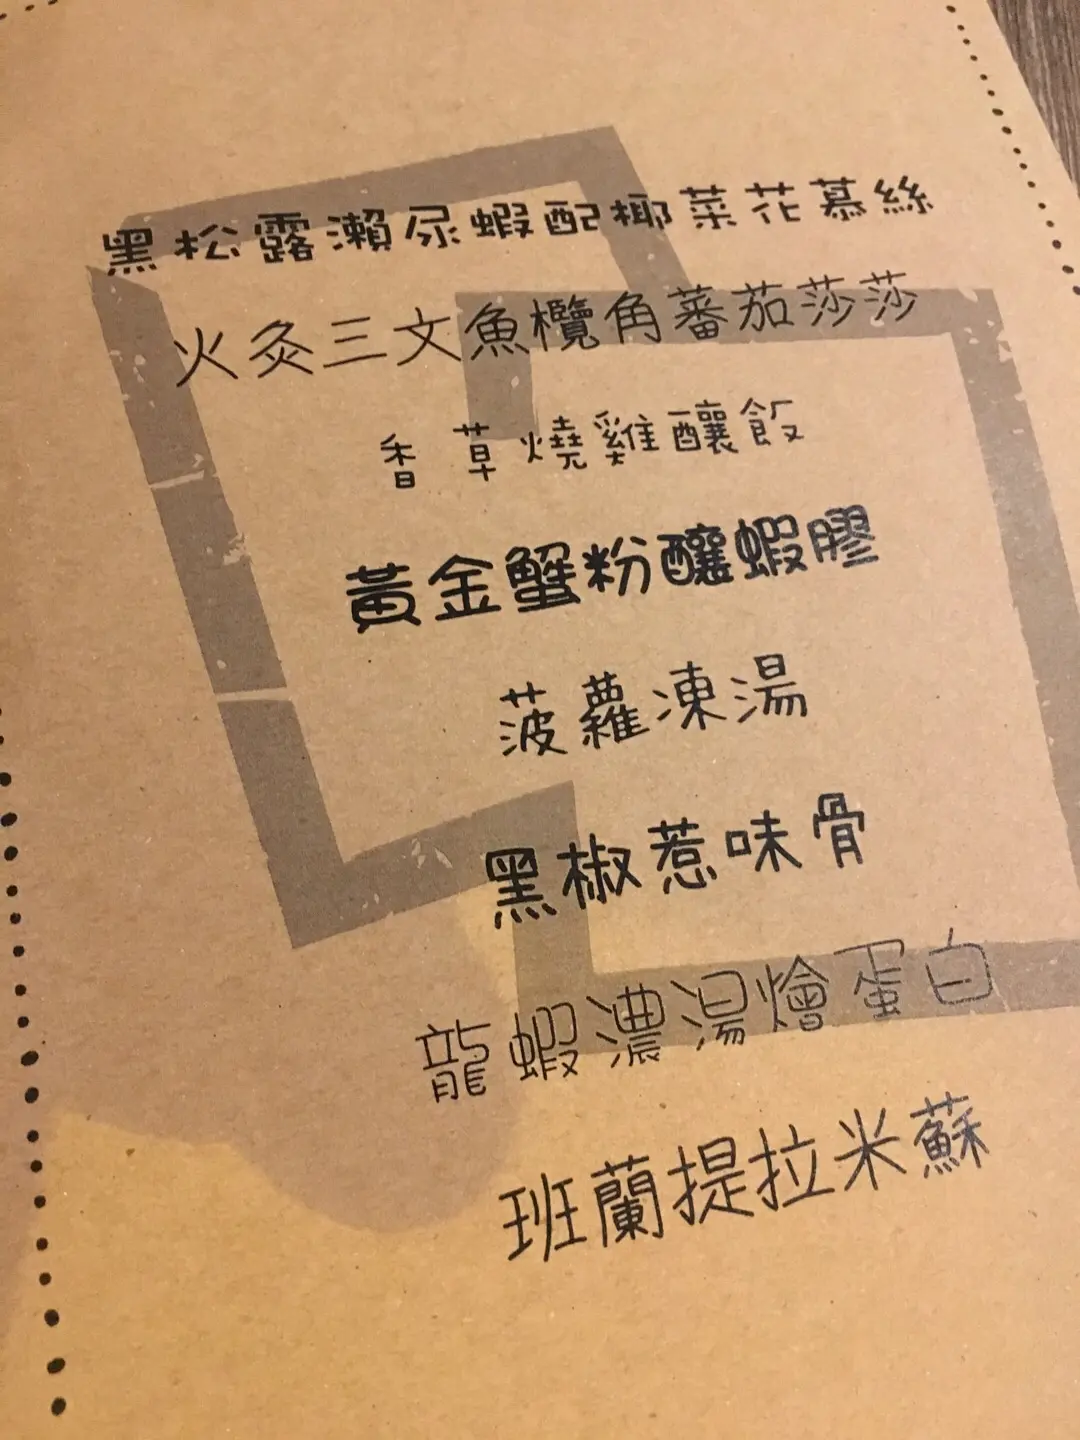 黑松露瀨尿蝦配椰菜花慕絲
火灸三文魚欖角蕃茄莎莎
香草燒雞釀飯
黃金蟹粉釀蝦膠
菠蘿凍湯
黑椒惹味骨
龍蝦濃湯燴蛋白
班蘭提拉米蘇